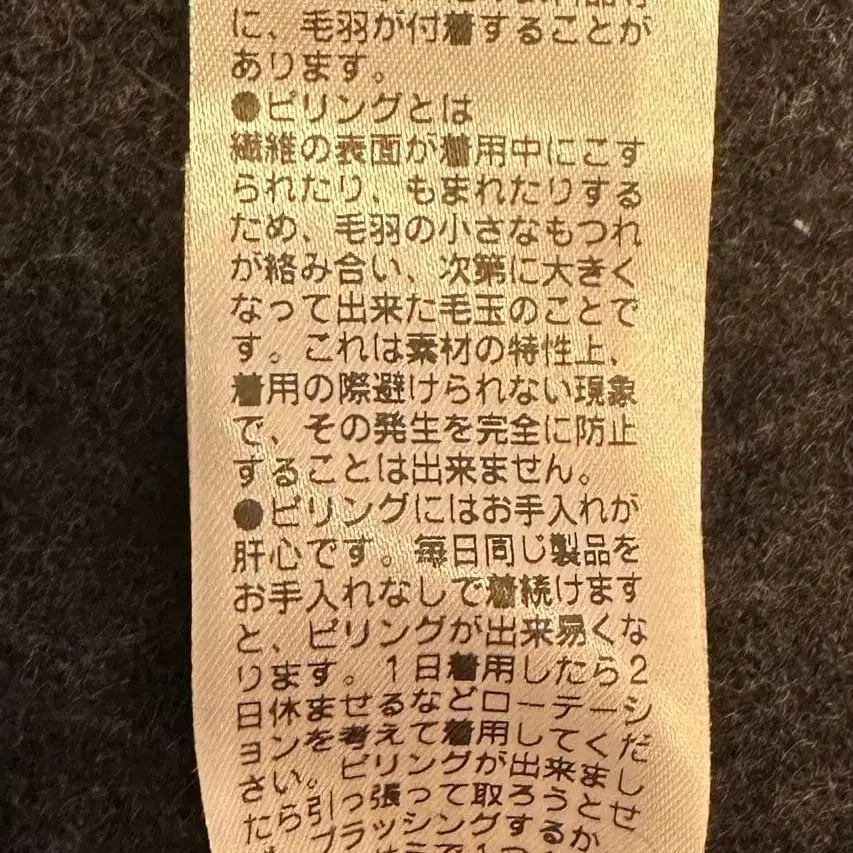 に、毛羽が付着することが
あります。
●ピリングとは
繊維の表面が着用中にこす
られたり、もまれたりする
ため、毛羽の小さなもつれ
が絡み合い、次第に大きく
なって出来た毛玉のことで
す。これは素材の特性上、
着用の際避けられない現象
で、その発生を完全に防止
することは出来ません。
●ピリングにはお手入れが
肝心です。毎日同じ製品を
お手入れなしで着続けます
と、ピリングが出来易くな
ります。1日着用したら2
日休ませるなどローテーシ
ョンを考えて着用してくだ
さい。ピリングが出来まし
たら引っ張って取ろうとせ
ブラッシングするか